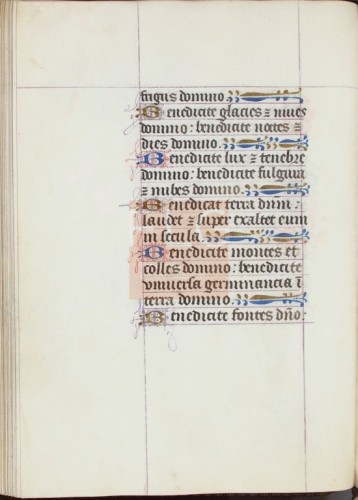 frigus domino.
Benedicite glacies ⁊ niues
domino: benedicite noctes ⁊
dies domino.
Benedicite lux ⁊ tenebre
domino: benedicite fulgura
⁊ nubes domino.
Benedicat terra dnm̄:
laudet ⁊ super exaltet eum
in secula.
Benedicite montes et
colles domino: benedicite
vniuersa germinancia ī
terra domino.
Benedicite fontes dño: